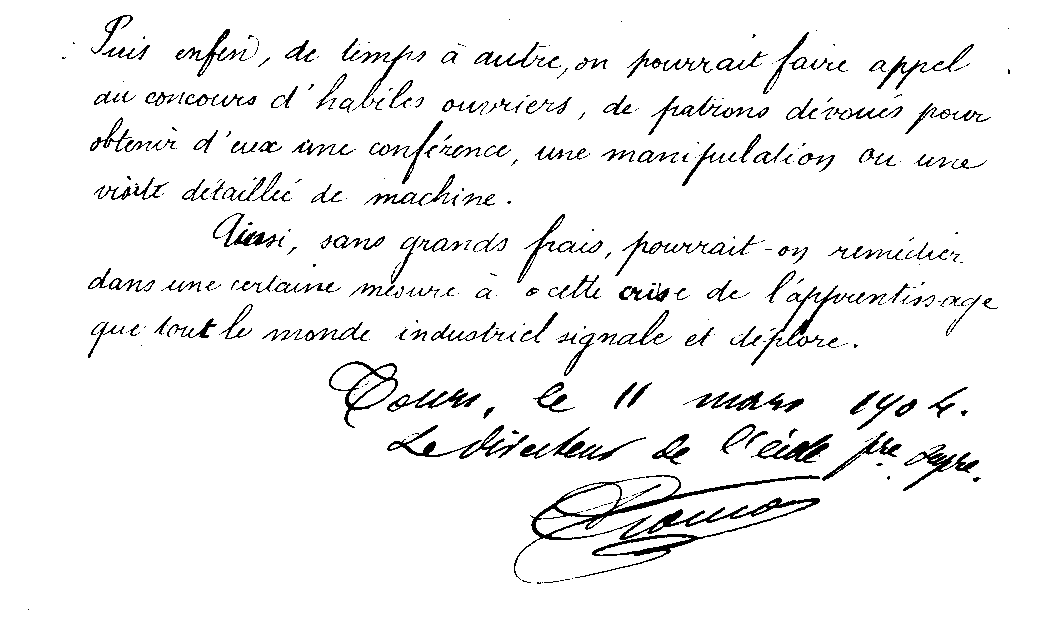 Puis enfin, de temps à autre, on pourrait faire appel
au concours d'habiles ouvriers, de patrons dévoués pour
obtenir d'eux une conférence, une manipulation ou une
visite détaillée de machine.
Ainsi, sans grands frais, pourrait-on remédier
dans une certaine mesure à cette crise de l'apprentissage
que tout le monde industriel signale et déplore.
Tours, le 11 mars 1904.
Le Directeur de l'école pre. supre.